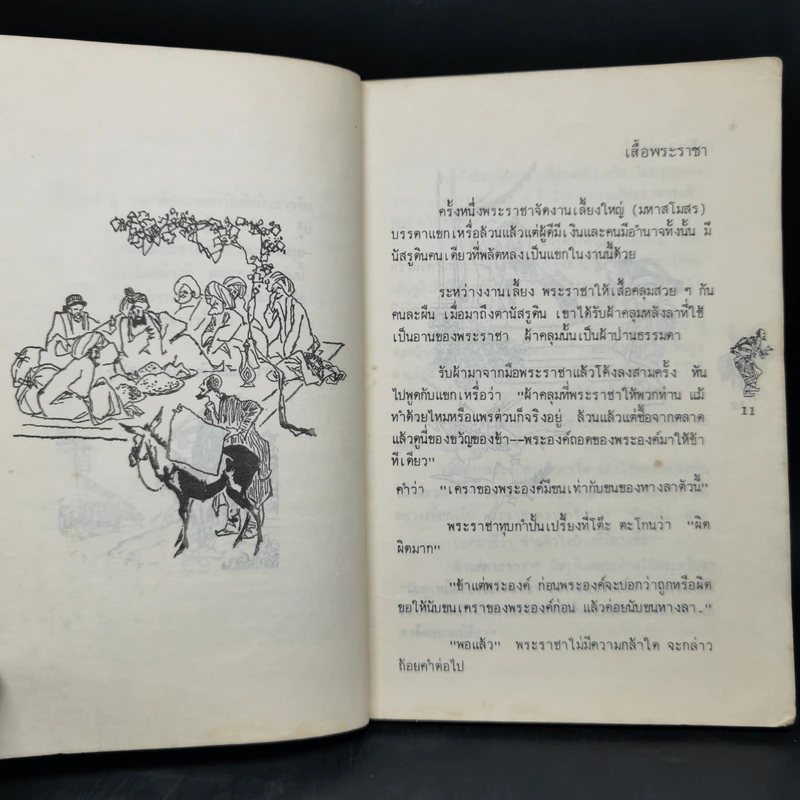 เสื้อพระราชา
ครั้งหนึ่งพระราชาจัดงานเลี้ยงใหญ่ (มหาสโมสร)
บรรดาแขกเหรื่อล้วนแล้วแต่ผู้ดีมีเงินและคนมีอำนาจทั้งนั้น มี
นัสรูดินคนเดียวที่พลัดหลงเป็นแขกในงานนี้ด้วย
ระหว่างงานเลี้ยง พระราชาให้เสื้อคลุมสวย ๆ กัน
คนละผืน เมื่อมาถึงตานัสรูดิน เขาได้รับผ้าคลุมหลังลาที่ใช้
เป็นอานของพระราชา ผ้าคลุมนั้นเป็นผ้าปานธรรมดา
รับผ้ามาจากมือพระราชาแล้วโค้งลงสามครั้ง หัน
ไปพูดกับแขกเหรื่อว่า "ผ้าคลุมที่พระราชาให้พวกท่าน แม้
ทำด้วยไหมหรือแพรต่วนก็จริงอยู่ ล้วนแล้วแต่ซื้อจากตลาด
แล้วดูนี่ของขวัญของข้า--พระองค์ถอดของพระองค์มาให้ข้า
ทีเดียว"
คำว่า "เคราของพระองค์มีขนเท่ากับขนของหางลาตัวนี้"
พระราชาทุบกำปั้นเปรี้ยงที่โต๊ะ ตะโกนว่า "ผิด
ผิดมาก"
"ข้าแต่พระองค์ ก่อนพระองค์จะบอกว่าถูกหรือผิด
ขอให้นับขนเคราของพระองค์ก่อน แล้วค่อยนับขนหางลา."
"พอแล้ว" พระราชาไม่มีความกล้าใด จะกล่าว
ถ้อยคำต่อไป
11